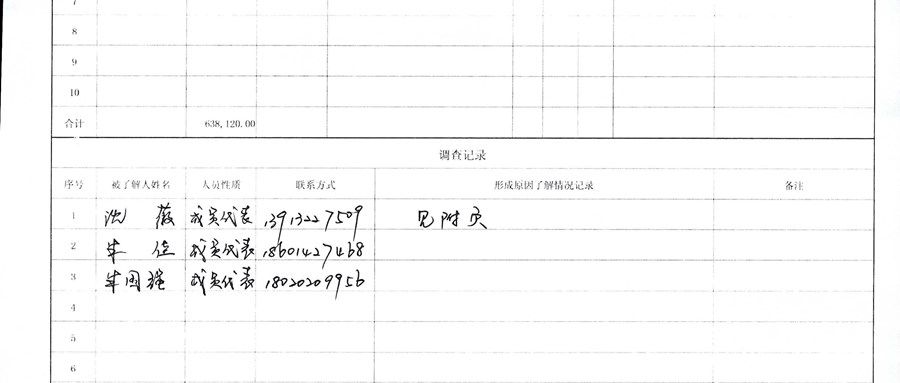 7
8
9
10
合计 638,120.00
调查记录
序号 被了解人姓名 人员性质 联系方式 形成原因了解情况记录 备注
1 沈 薇 成员代表 13913227509 见附页
2 牟 位 成员代表 18601427468
3 牟国瑞 成员代表 18020209956
4
5
6